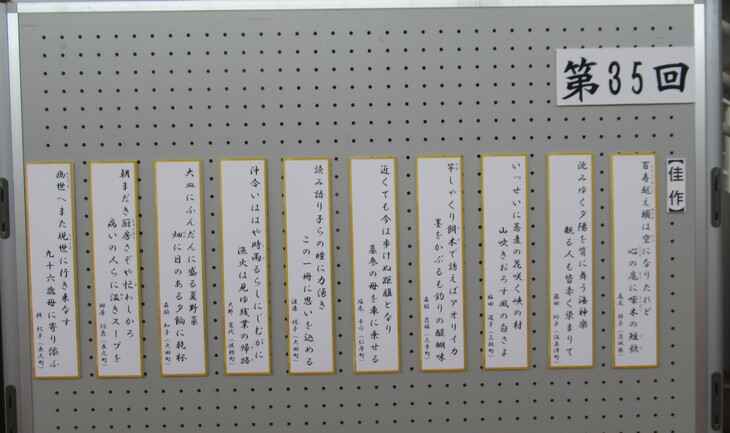 第35回
【佳作】
百寿越え頬は空になりたれど
心の底に啄木の短歌
沈みゆく夕陽を背に舞う海神楽
観る人も皆赤く染まりて
いっせいに蕎麦の花咲く峡の村
山吹きおろす風の白さよ
竿しゃくり餌木で誘えばアオリイカ
墨をかぶるも釣りの醍醐味
近くても今は歩けぬ距離となり
墓参の母を車に乗せる
読み語り子らの瞳に力湧き
この一冊に思いを込める
沖合いははや時雨るらしにじむがに
漁火は見ゆ残業の帰路
大皿にふんだんに盛る夏野菜
畑に日のある夕餉に乾杯
朝まだき厨房さぞや忙わしかろ
病いの人らに温きスープを
幽世へまた現世に行き来なす
九十六歳母に寄り添ふ